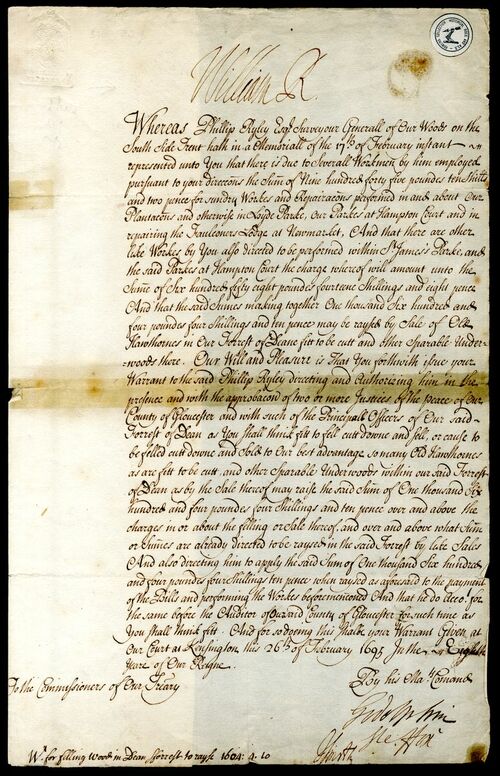 William R.
Whereas Phillip Ryley Esqr Surveyour Generall of Our Woods on the
South Side Trent hath in a Memoriall of the 17th of February instant
represented unto You that there is due to Severall Workmen by him employed
pursuant to your direccons the Sum of Nine hundred forty five poundes ten Shills
and two pence for sundry Workes and Reparacons performed in and about Our
Plantacons and otherwise in Hyde Parke, Our Parkes at Hampton Court and in
repairing the Faulconers Lodge at Newmarkett, And that there are other
like Workes by You also directed to be performed within St James's Parke, and
the said Parkes at Hampton Court the charge whereof will amount unto the
Sume of Six hundred fifty eight poundes fourteene Shillings and eight pence
And that the said Sumes making together One thousand Six hundred and
four poundes four Shillings and ten pence may be raysed by Sale of Old
Hawthornes in Our Forrest of Deane fitt to be cutt and other Sparable Under-
woods there. Our Will and Pleasure is That You forthwith issue your
Warrant to the said Phillip Ryley directing and Authorizing him in the
presence and with the approbacon of two or more Justices of the peace of Our
County of Gloucester and with such of the Principall Officers of Our said
Forrest of Dean as You shall think fitt to fell cutt downe and sell, or cause to
be felled cutt downe and Sold to Our best advantage so many Old Hawthornes
as are fitt to be cutt and other Sparable Underwoods within our said Forrest
of Dean as by the Sale thereof may raise the said Sum of One thousand Six
hundred and four poundes four Shillings and ten pence over and above the
charges in or about the felling or Sale thereof, and over and above what Sum
or Sumes are already directed to be raysed in the said Forrest by late Sales
And also directing him to apply the said Sum of One thousand Six hundred
and four poundes four Shillings ten pence when raysed as aforesaid to the payment
of the Bills and performing the Workes beforemenconed And that he do Acco: for
the same before the Auditor of Our said County of Gloucester for such time as
You shall think fitt. And for so doing this shalbe your Warrant Given at
Our Court at Kensington this 26th of February 1695 In the Eighth
Yeare of Our Reigne.
To the Commissioners of Our Treãry
By his Mats Comand
Godolphin
Ste Fox
Wt for felling wood in Dean fforrest to rayse 1604: 4. 10